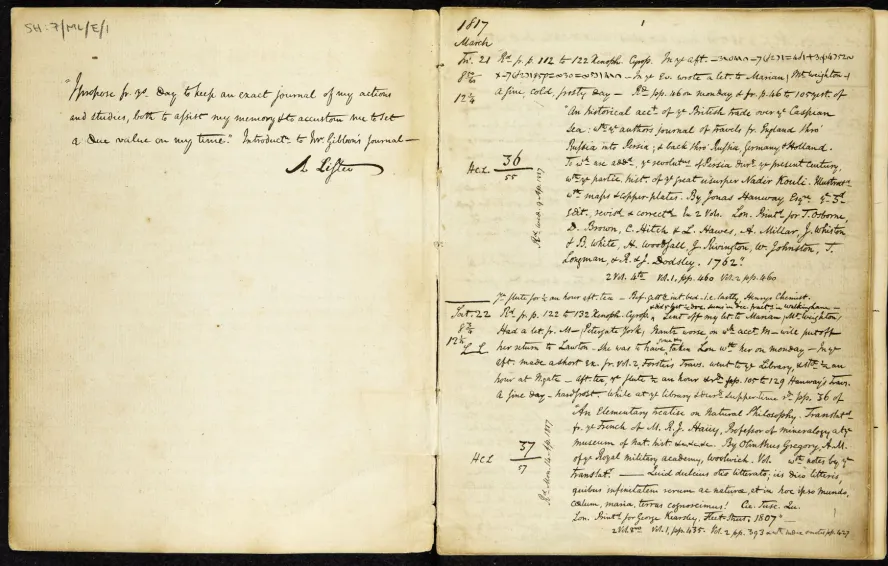 SH:7/ML/E/1
"I propose fr. ye. Day to keep an exact journal of my actions
and studies, both to assist my memory & to accustom me to set
a due value on my time." Introduct. to Mr. Gibbon's Journal —
A Lister
1
1817
March
Fri. 21 Rd. p.p. 112 to 122 Xenoph. Cyrop. In ye aft.
In ye Ev. wrote a let. to Mariana, Mt. Wrighton
12 1/4 a fine, cold, frosty day — Rd. pp. 46 on monday & fr. p. 46 to 105 yest. of
"An historical acct. of ye British trade over ye Caspian
Sea: wth. ye authors journal of travels fr. England thro'
Russia into Persia; & back thro' Russia, Germany & Holland.
To wh. are addd. ye revolutns. of Persia dur. ye present century,
wth. ye partic. hist. of ye great usurper Nadir Kouli. Illustratd.
wth. maps & copper-plates. By Jonas Hanway, Esqr. ye 3d.
Edit., revisd & correctd. In 2 Vols. Lon. Printd. for T. Osborne,
D. Brown, C. Hitch & L. Hawes, A. Millar, J. Whiston
& B. White, H. Woodfall, J. Rivington, W. Johnston, T.
Longman, & R. & J. Dodsley. 1762"
2 Vol. 4to. Vol. 1, pp. 460 Vol. 2 pp. 460
HCL 36
55
flute for 1/2 an hour aft. tea — Bef. gett. int. bed. i.e. lastly Henrys Chemist.
Sat. 22 Rd. p.p. 122 to 132 Xenoph. Cyrop. Sent off my let. to Mariana, Mt. Wrighton,
Had a let. fr. M— Petergate York;
her return to Lawton. She was to have taken Lou wth. her on monday — In ye
aft. made a short ex. fr. Vol. 2, Forster's Travs. went to ye Library, 1/2 an
hour at Ngate — aft. tea, ye flute 1/2 an hour & rd. pp. 105 to 129 Hanway's Travs.
a fine day — hard frost. While at ye library & dur. supper time rd. pp. 36 of
"An Elementary treatise on Natural Philosophy. Translatd.
fr. ye French of M. R. J. Haüy, Professor of mineralogy at ye
museum of Nat. hist. &c &c &c. By Olinthus Gregory, A.M.
of ye Royal military academy, Woolwich. Vol. wth. notes by ye
translatr. — Quid dulcius otio litterato; iis dico litteris,
quibus infinitatem rerum ac naturæ, et in hoc ipso mundo,
cœlum, maria, terras cognoscimus! Cic. Tusc. Qu.
Lon. Printd. for George Kearsley, Fleet Street, 1807" —
2 Vol. 8vo. Vol. 1, pp. 435. Vol. 2 pp. 393
HCL 37
57